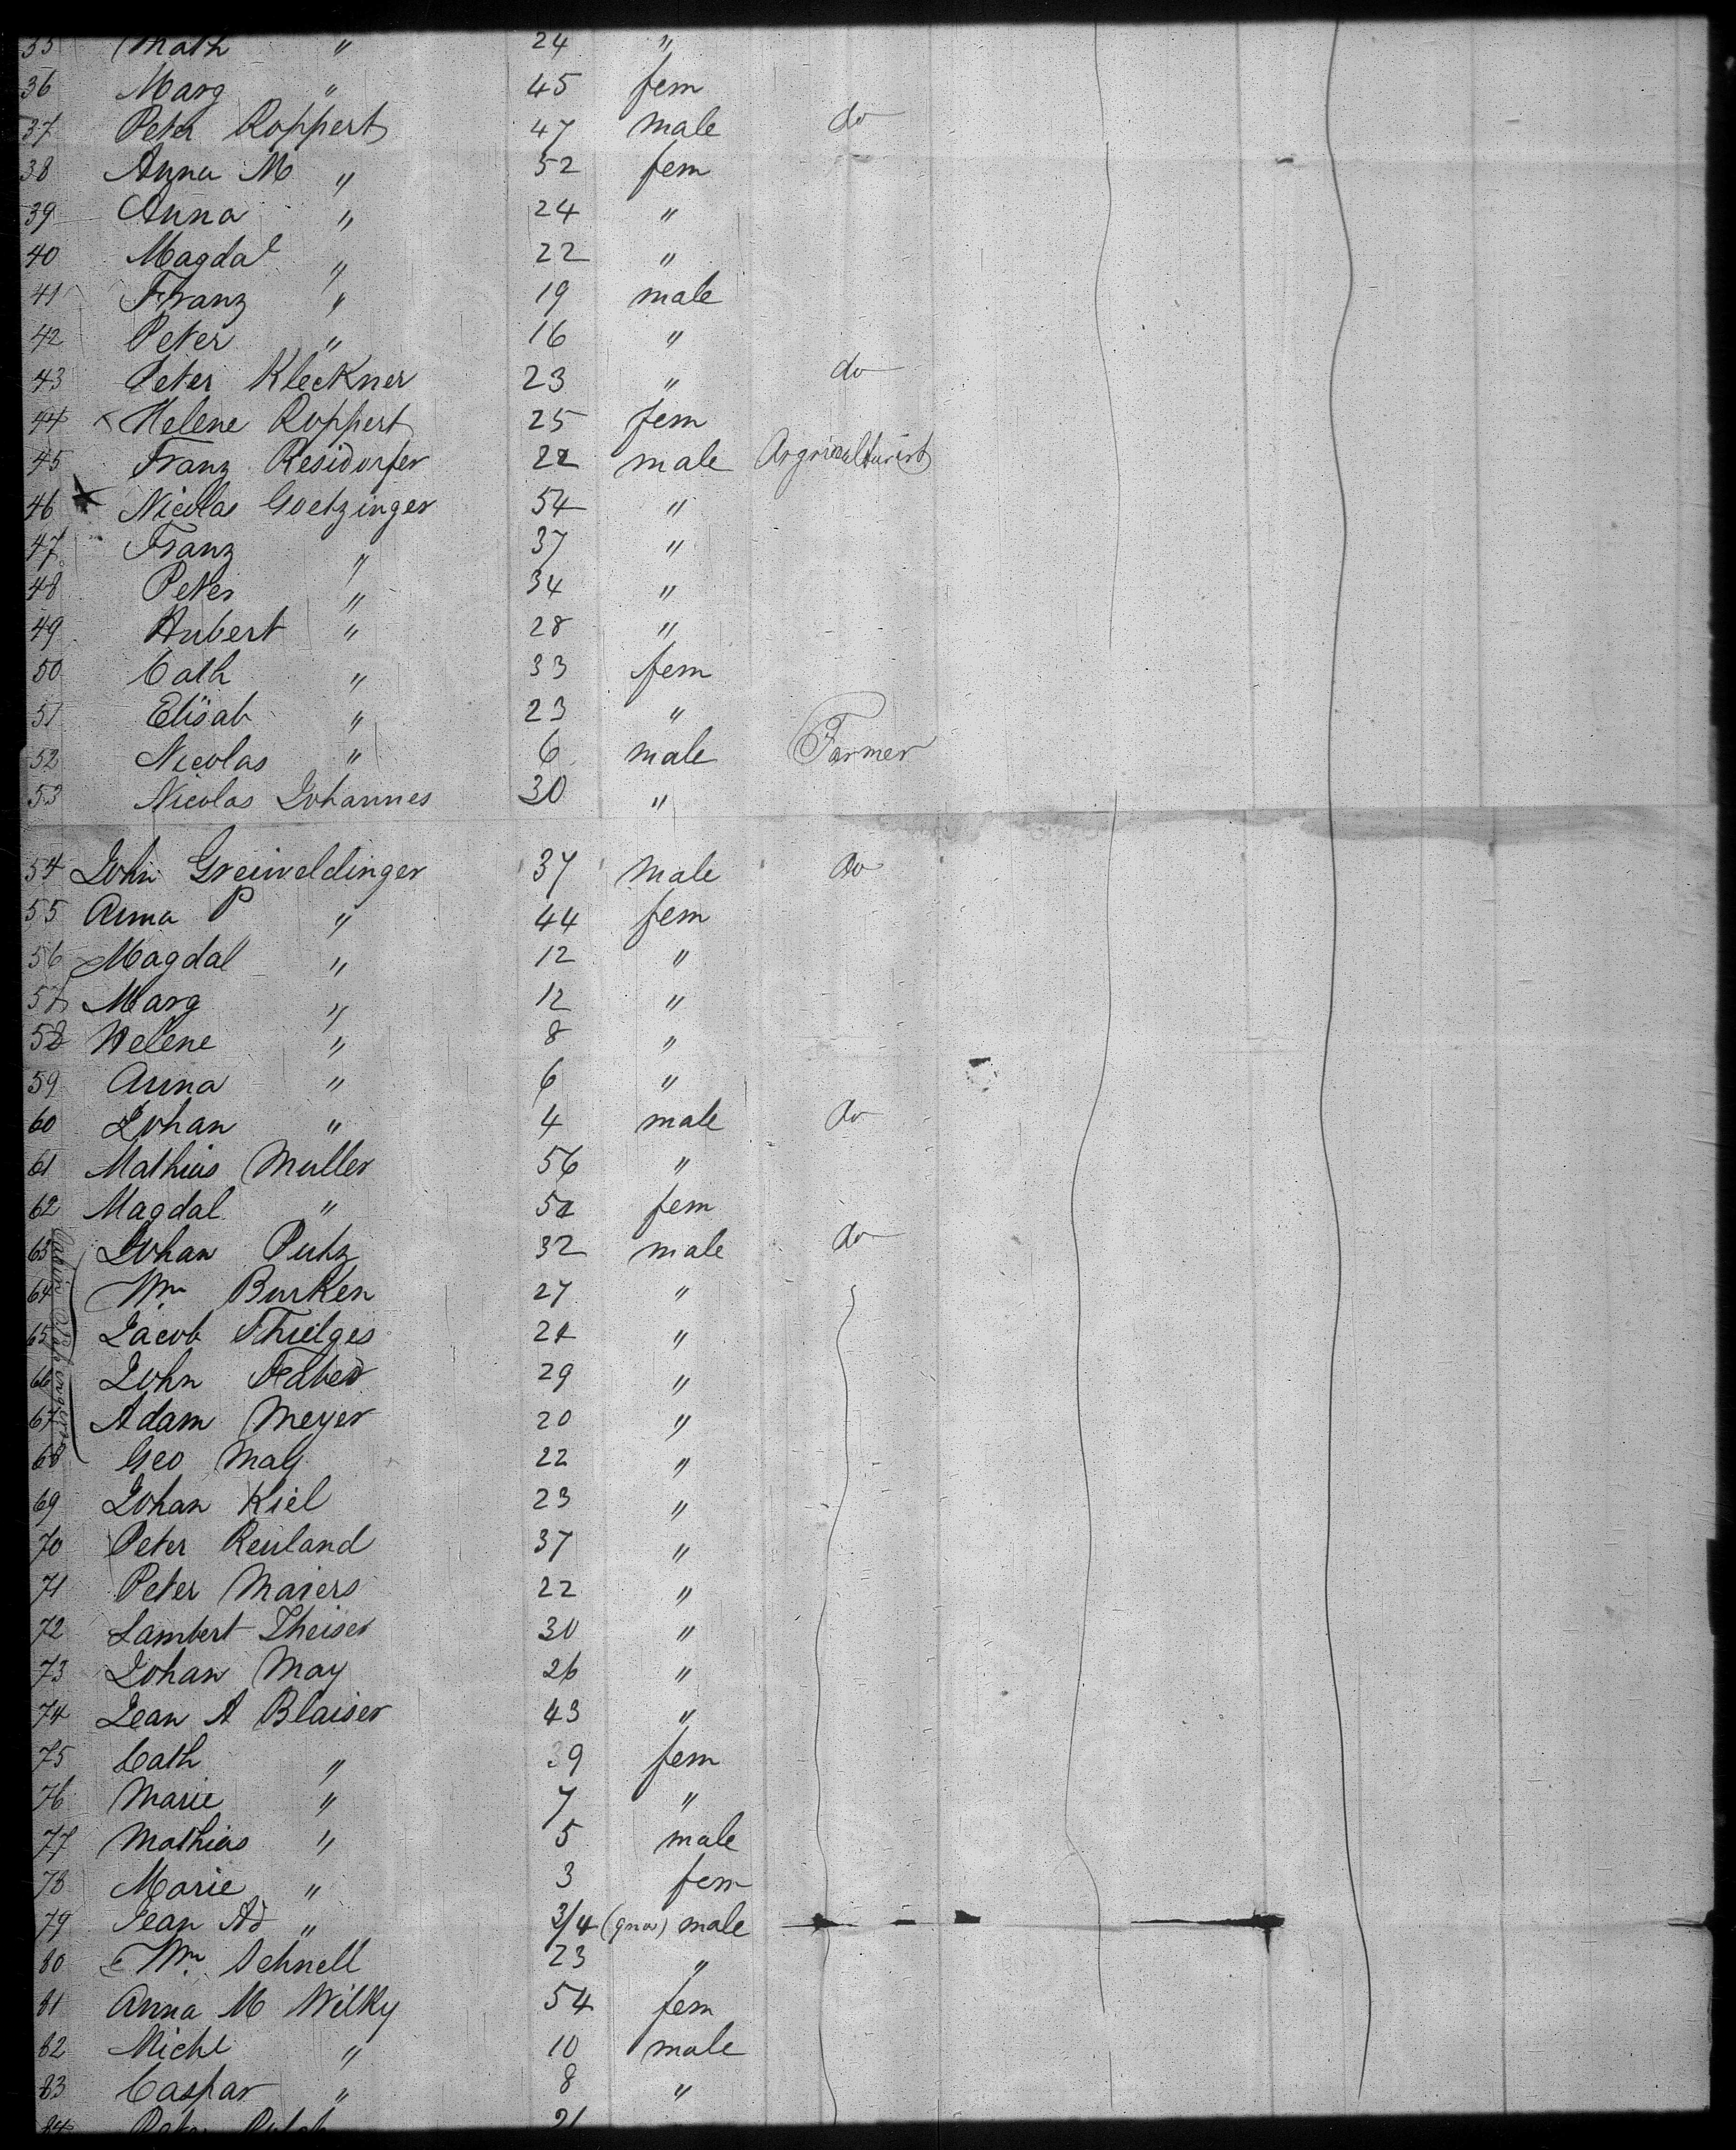 35 Math " 24 "
36 Marg " 45 fem
37 Peter Roppert 47 male do
38 Anna M " 52 fem
39 Anna " 24 "
40 Magdal " 22 "
41 Franz " 19 male
42 Peter " 16 "
43 Peter Kleckner 23 " do
44 Helene Roppert 25 fem
45 Franz Residorfer 22 male Argriculturist
46 Nicolas Goetzinger 54 "
47 Franz " 37 "
48 Peter " 34 "
49 Hubert " 28 "
50 Cath " 33 fem
51 Elisab " 23 "
52 Nicolas " 6 male Farmer
53 Nicolas Johannes 30 "
54 John Greiweldinger 37 male do
55 Anna P " 44 fem
56 Magdal " 12 "
57 Marg " 12 "
58 Helene " 8 "
59 Anna " 6 "
60 Johan " 4 male do
61 Mathias Muller 56 "
62 Magdal " 52 fem
63 Johan Putz 32 male do
64 Wm Burken 27 "
65 Jacob Thielges 21 "
66 John Faber 29 "
67 Adam Meyer 20 "
68 Geo May 22 "
69 Johan Kiel 23 "
70 Peter Reuland 37 "
71 Peter Maiers 22 "
72 Lambert Theiser 30 "
73 Johan May 26 "
74 Jean A Blaiser 43 "
75 Cath " 39 fem
76 Marie " 7 "
77 Mathias " 5 male
78 Marie " 3 fem
79 Jean Ad " 3/4 male
80 Wm Schnell 23 "
81 Anna M Wilky 54 fem
82 Michl " 10 male
83 Caspar " 8 "
84 Peter 21